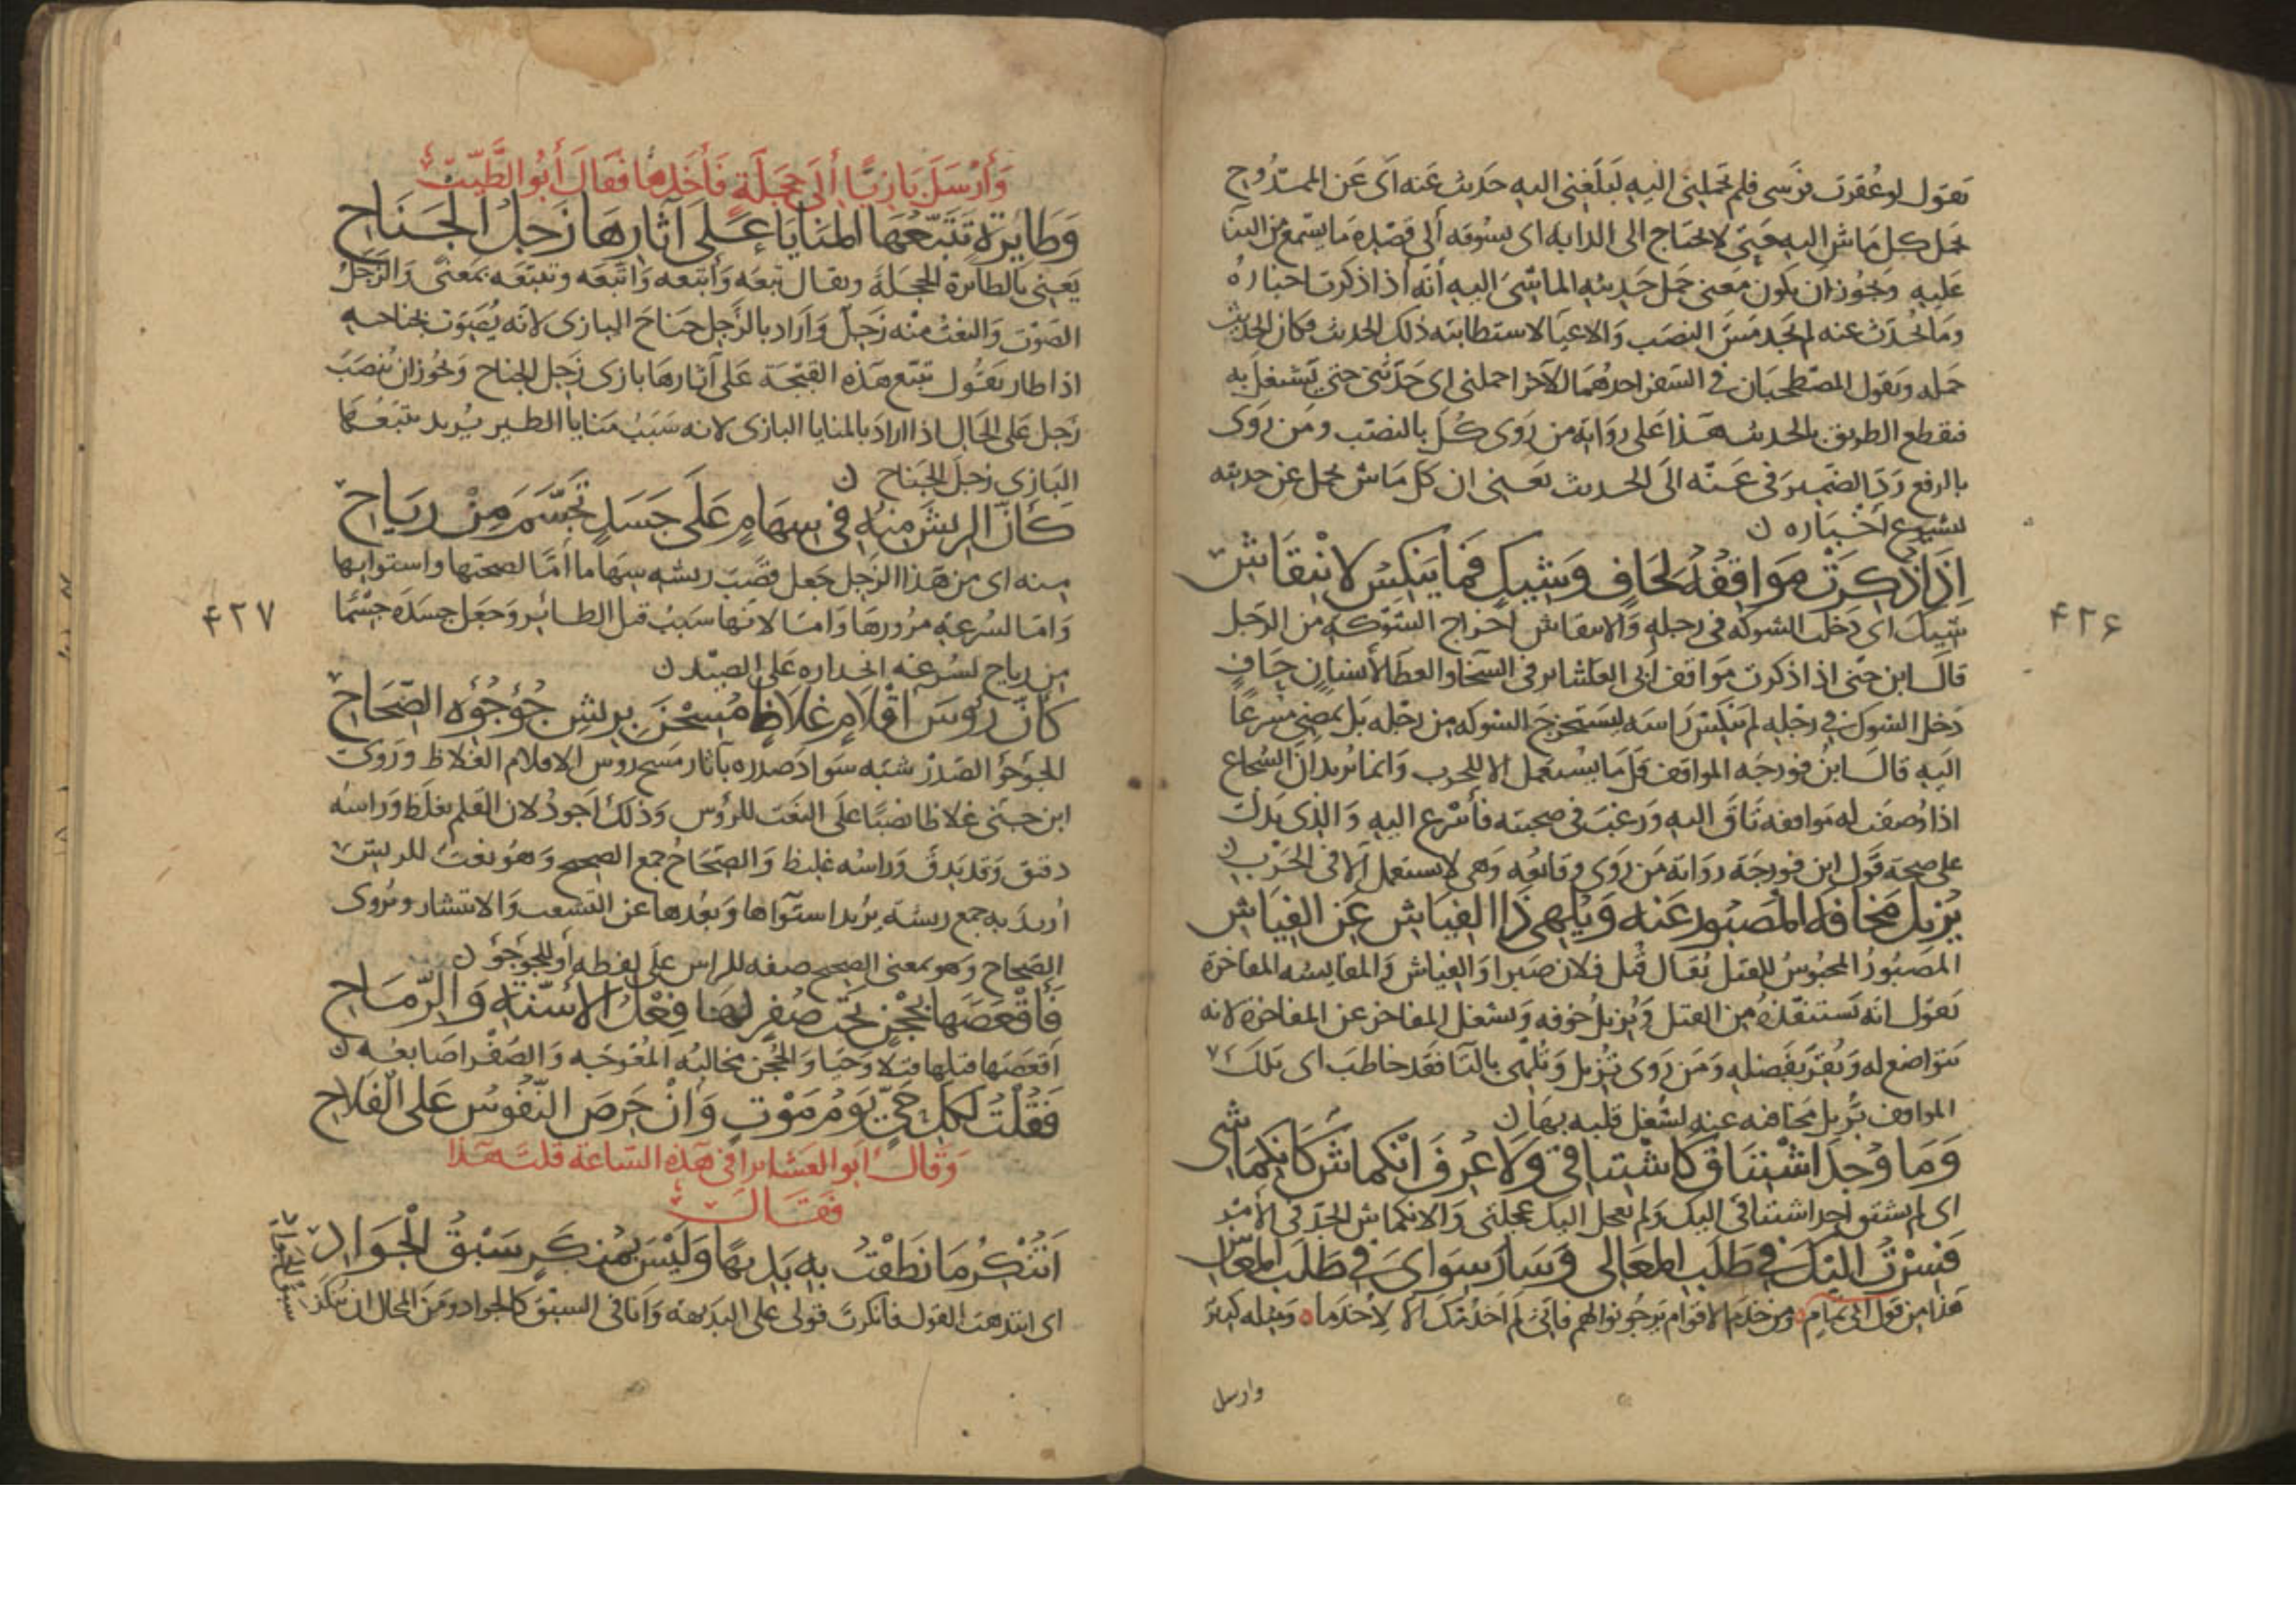 تقول لو عُقرت فرسى فلم تحملنى اليه لبلغنى اليه حديث عنه اى عن الممدوح
يحمل كل ماش اليه حتى لا يحتاج الى الدابه اى يشوقه الى قصده ما يسمع من
عليه ويجوز ان يكون معنى حمل حديثه الماشى اليه انه اذا ذكرت اخباره
وما يُحدث عنه لم يجد مس النصب والاعيا لاستطابته ذلك الحديث فكان الحديث
حمله ويقول المصطحبان فى السفر احدهما للآخر احملنى اى حدثنى حتى نشتغل به
فنقطع الطريق بالحديث هذا على رواية من روى كل بالنصب ومن روى
بالرفع رد الضمير فى عنه الى الحديث يعنى ان كل ماش يحمل عن حديثه
لشيوع اخباره ن
اِذَا ذُكِرَتْ مَوَاقِفُهُ لِحَافٍ وَشِيكَ فَمَا يُنَكِّسُ لِانْتِقَاشِ
شيك اى دخلت الشوكه فى رجله والانتقاش اخراج الشوكه من الرجل
قال ابن جنى اذا ذكرت مواقف ابى العشاير فى السخا والعطا لانسان حاف
دخل الشوك فى رجله لم ينكس راسه ليستخرج الشوكه من رجله بل يمضى مسرعا
اليه قال ابن فورجه المواقف قل ما يستعمل الا للحرب وانما يريد ان الشجاع
اذا وُصفت له مواقفه تاق اليه ورغب فى صحبته فأسرع اليه والذى يدلك
على صحة قول ابن فورجة رواية من روى وقائعه وهى لا يستعمل الا فى الحرب ن
يُزِيلُ مَخَافَةَ الْمَصْبُورِ عَنْهُ وَيُلْهِى ذَا الفِيَاشِ عَنِ الفِيَاشِ
المصبور المحبوس للقتل يُقال قُتل فلان صبرا والفياش والمفايشه المفاخرة
يقول انه يستنقذه من القتل ويُزيل خوفه ويشغل المفاخر عن المفاخرة لانه
يتواضع له ويُقرّ بفضله ومن روى تزيل وتُلهى بالتا فقد خاطب اى تلك
المواقف تزيل مخافته عنه لشغل قلبه بها ن
وَمَا وُجِدَ اشْتِيَاقٌ كَاشْتِيَاقِى وَلَا عُرِفَ انْكِمَاشٌ كَانْكِمَاشِى
اى لم يشتق احد اشتياقى اليك ولم يعجل اليك عجلتى والانكماش الجد فى الامر
فَسِرْتُ اِلَيْكَ فِى طَلَبِ المَعَالِى وَسَارَ سِوَاىَ فِى طَلَبِ المَعَاشِ
هذا من قول ابى تمام ومن خدم الاقوام يرجو نوالهم فانى لم اخدمك الا لاخدما ومثله كثير
وارسل
۴۲۶
وَأَرْسَلَ بَازِيًا إِلَى حَجَلَةٍ فَأَخَذَهَا فَقَالَ أَبُو الطَّيِّبِ
وَطَائِرَةٍ تَتَبَّعُهَا المَنَايَا عَلَى آثَارِهَا زَجِلُ الجَنَاحِ
يعنى بالطائرة الحجلة ويقال تبعه وأتبعه واتّبعه وتتبعه بمعنى والزجل
الصوت والنعت منه زجل وأراد بالزجل جناح البازى لانه يُصوّت بجناحه
اذا طار يقول تتبع هذه القبجة على آثارها بازى زجل الجناح ويجوز ان تنصب
زجل على الحال اذا اراد بالمنايا البازى لانه سبب منايا الطير يريد تتبعها
البازى زجل الجناح ن
كَأَنَّ الرِّيشَ مِنْهُ فِى سِهَامٍ عَلَى جَسَدٍ تَجَسَّمَ مِنْ رِيَاحِ
منه اى من هذا الزجل جعل قصب ريشه سهاما امّا لصحتها واستوايها
وامّا لسرعة مرورها وامّا لانها سبب قتل الطائر وجعل جسده جسما
من رياح لسرعة انحداره على الصيد ن
كَأَنَّ رُؤُسَ اقْلَامٍ غِلَاظٍ مُسِحْنَ بِرِيشِ جُؤْجُؤِهِ الصِّحَاحِ
الجؤجؤ الصدر شبه سواد صدره بآثار مسح روس الاقلام الغلاظ وروى
ابن جنى غلاظا نصبا على النعت للرؤس وذلك اجود لان القلم يغلظ وراسه
دقيق وقد يدق وراسه غليظ والصحاح جمع الصحيح وهو نعت للريش
اُريد به جمع ريشة يريد استواها وبعدها عن التشعب والانتشار ويُروى
الصحاح وهو بمعنى الصحيح صفه للراس على لفظه أو للجؤجؤ ن
فَأَقْعَصَهَا بِحُجْنٍ تَحْتَ صُفْرٍ لَهَا فِعْلُ الاَسِنَّةِ وَالرِّمَاحِ
اقعصها قتلها قتلا وحيا والحجن مخالبه المعوجه والصفر اصابعه ن
فَقُلْتُ لِكُلِّ حَىٍّ يَوْمُ مَوْتٍ وَاِنْ حَرِصَ النُّفُوسُ عَلَى الْفَلَاحِ
وقال ابو العشاير أفى هذه الساعة قلت هذا
فقال
اَتُنْكِرُ مَا نَطَقْتُ بِهِ بَدِيهًا وَلَيْسَ بِمُنْكَرٍ سَبْقُ الْجَوَادِ
اى ابتدهت القول فانكرت قولى على البديهة وانا فى السبق كالجواد ومن المحال ان ينكر
سبق الجواد
۴۲۷